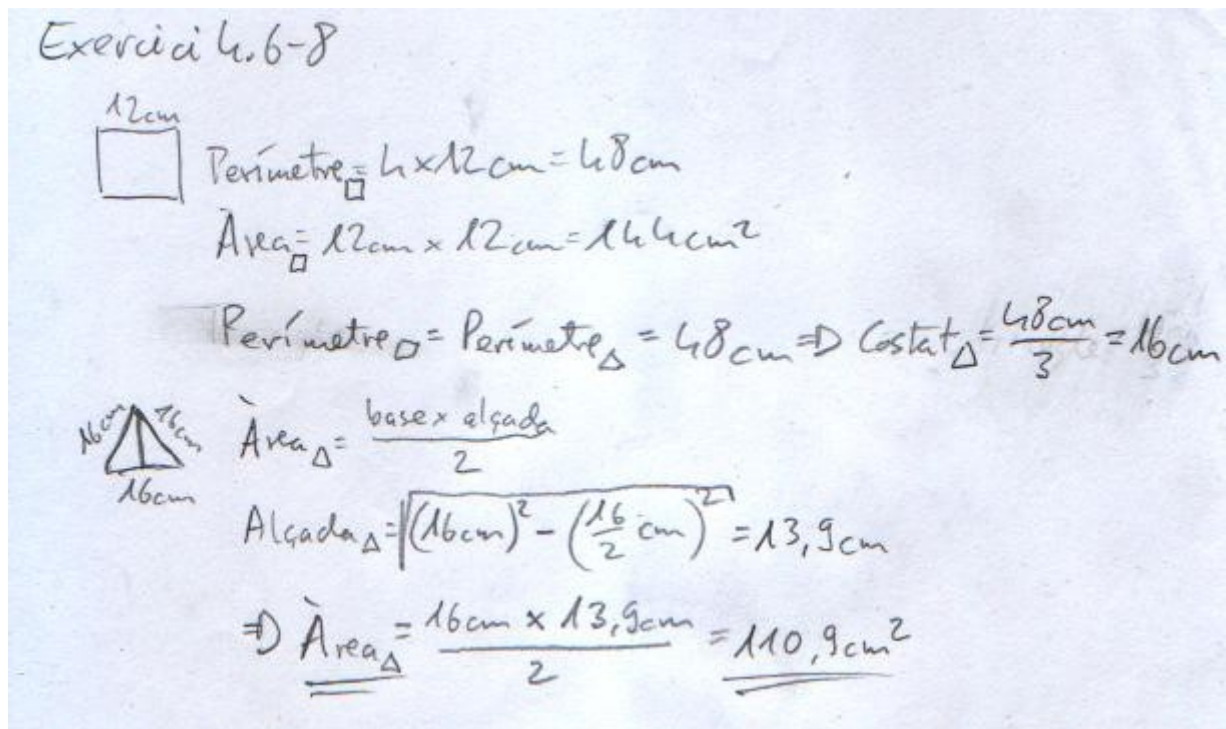 Exercici 4.6-8
12cm
Perímetre□ = 4 x 12 cm = 48 cm
Àrea□ = 12cm x 12 cm = 144cm²
Perímetre□ = Perímetre△ = 48 cm ⇒ Costat△ = 48cm / 3 = 16 cm
16cm 16cm
16cm
Àrea△ = base x alçada / 2
Alçada△ = √((16cm)² - (16/2 cm)²) = 13,9 cm
⇒ Àrea△ = 16cm x 13,9cm / 2 = 110,9cm²